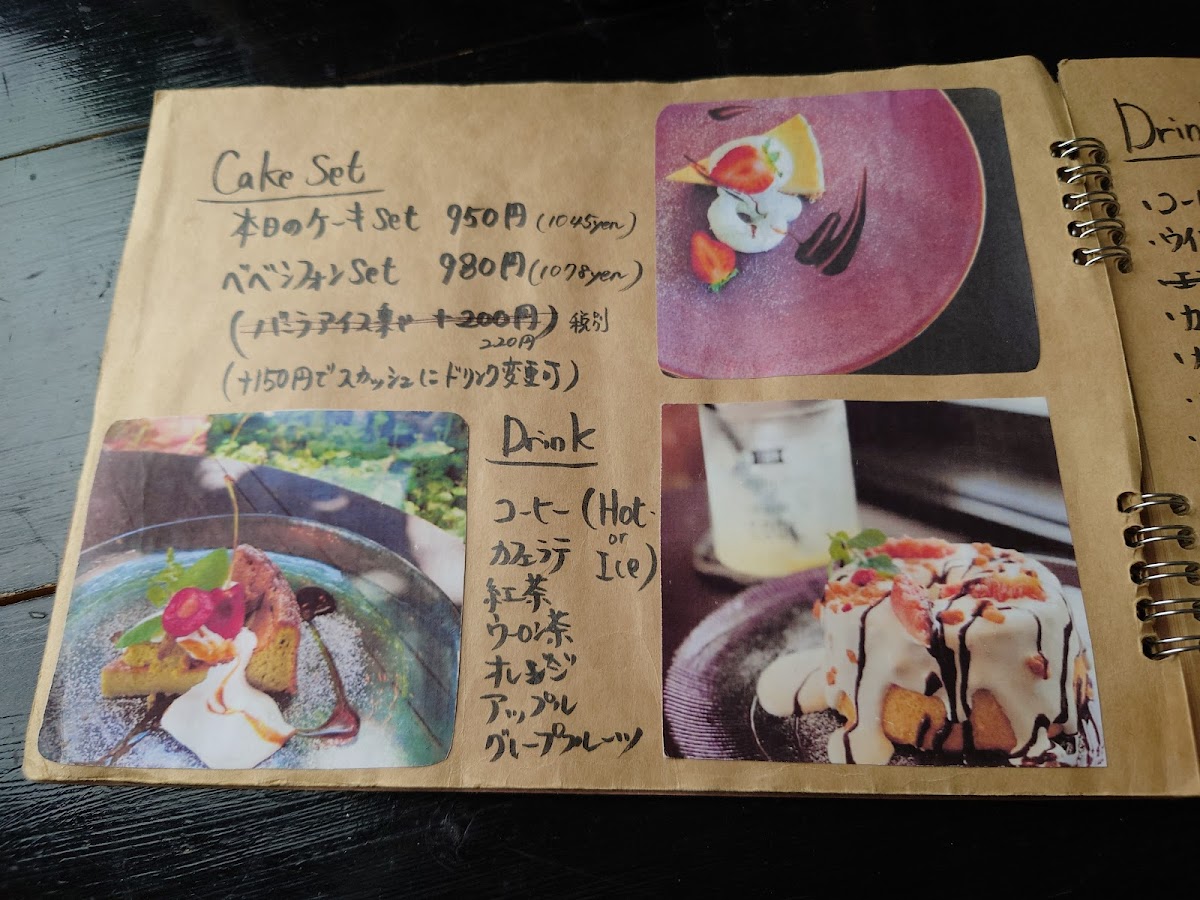 Cake Set
本日のケーキSet 950円(1045yen)
ベベシフォンSet 980円(1078yen)
(バニラアイス乗せ +200円) 税別
220円
(+150円でスカッシュにドリンク変更可)
Drink
コーヒー (Hot or Ice)
カフェラテ
紅茶
ウーロン茶
オレンジ
アップル
グレープフルーツ
Drin
・コー
・ウイ
エ
・カ